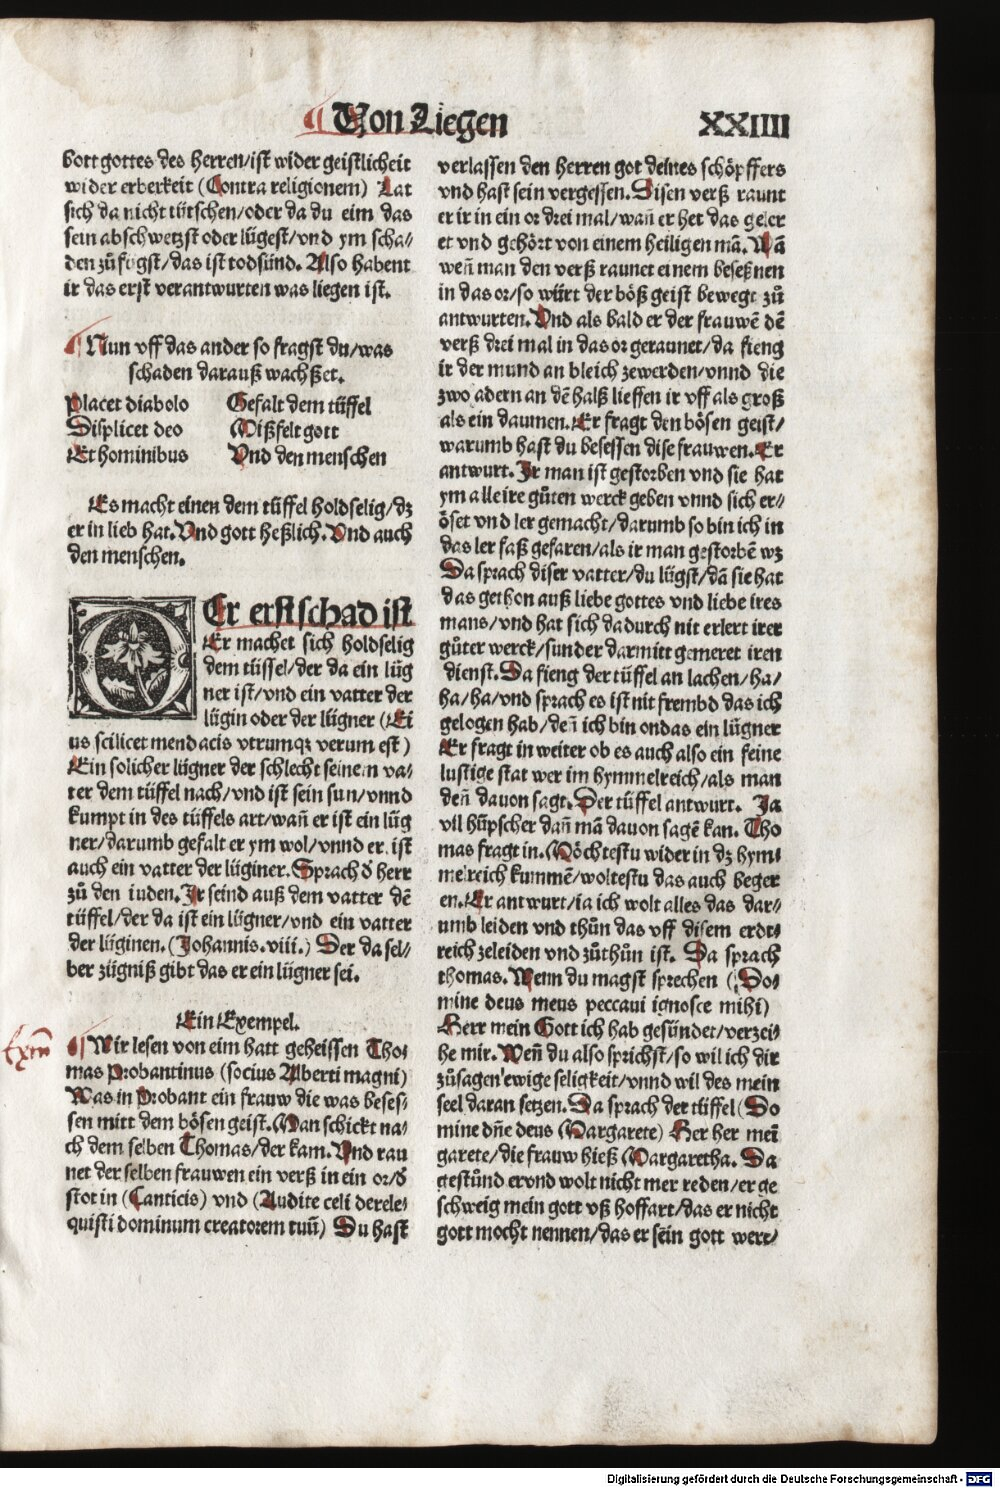 ¶ Von Liegen XXIIII
bott gottes des herren/ist wider geistlicheit
wider erberkeit (Contra religionem) Lat
sich da nicht tütschen/oder da du eim das
sein abschwetzst oder lügest/vnd ym scha⸗
den zůfügst/das ist todsünd. Also habent
ir das erst verantwurten was liegen ist.
¶ Nun vff das ander so fragst du/was
schaden darauß wachßet.
Placet diabolo Gefalt dem tüffel
Displicet deo Mißfelt gott
Et hominibus Vnd den menschen
Es macht einen dem tüffel holdselig/dz
er in lieb hat. Vnd gott heßlich. Vnd auch
den menschen.
DEr erst schad ist
Er machet sich holdselig
dem tüffel/der da ein lüg
ner ist/vnd ein vatter der
lügin oder der lügner (Ei
us scilicet mendacis vtrumqꝫ verum est)
Ein solicher lügner der schlecht seinem va⸗
ter dem tüffel nach/vnd ist sein sun/vnnd
kumpt in des tüffels art/wañ er ist ein lüg
ner/darumb gefalt er ym wol/vnnd er ist
auch ein vatter der lüginer. Sprach d᷑ herr
zů den iuden. Ir seind auß dem vatter dē
tüffel/der da ist ein lügner/vnd ein vatter
der lüginen. (Johannis.viii.) Der da sel⸗
ber zügniß gibt das er ein lügner sei.
Ein Exempel.
¶ Wir lesen von eim hatt geheissen Tho⸗
mas Probantinus (socius Alberti magni)
Was in Probant ein frauw die was beses⸗
sen mitt dem bösen geist. Man schickt na⸗
ch dem selben Thomas/der kam. Vnd rau
net der selben frauwen ein verß in ein or/d᷑
stot in (Canticis) vnd (Audite celi derele⸗
quisti dominum creatorem tuū) Du hast
verlassen den herren got deines schöpffers
vnd hast sein vergessen. Disen verß raunt
er ir in ein or drei mal/wañ er het das geler
et vnd gehört von einem heiligen mā. Wā
weñ man den verß raunet einem beseßnen
in das or/so würt der böß geist bewegt zů
antwurten. Vnd als bald er der frauwē dē
verß drei mal in das or geraunet/da fieng
ir der mund an bleich zewerden/vnnd die
zwo adern an dē halß lieffen ir vff als groß
als ein daumen. Er fragt den bösen geist/
warumb hast du besessen dise frauwen. Er
antwurt. Ir man ist gestorben vnd sie hat
ym alle ire gůten werck geben vnnd sich er⸗
öset vnd ler gemacht/darumb so bin ich in
das ler faß gefaren/als ir man gestorbē wz
Da sprach diser vatter/du lügst/dā sie hat
das gethon auß liebe gottes vnd liebe ires
mans/vnd hat sich dadurch nit erlert irer
gůter werck/sunder darmitt gemeret iren
dienst. Da fieng der tüffel an lachen/ha/
ha/ha/vnd sprach es ist nit frembd das ich
gelogen hab/deñ ich bin ondas ein lügner
Er fragt in weiter ob es auch also ein feine
lustige stat wer im hymmelreich/als man
deñ dauon sagt. Der tüffel antwurt. Ja
vil hüpscher dañ mā dauon sagē kan. Tho
mas fragt in. Möchtestu wider in dz hym⸗
melreich kummē/woltestu das auch beger
en. Er antwurt/ia ich wolt alles das dar⸗
umb leiden vnd thůn das vff disem erdt⸗
reich zeleiden vnd zůthůn ist. Da sprach
thomas. Wenn du magst sprechen (Do⸗
mine deus meus peccaui ignosce mihi)
Herr mein Gott ich hab gesündet/verzei⸗
he mir. Weñ du also sprichst/so wil ich dir
zůsagen ewige seligkeit/vnnd wil des mein
seel daran setzen. Da sprach der tüffel (Do
mine dñe deus Margarete) Her her meñ
garete/die frauw hieß Margaretha. Da
gestůnd er vnd wolt nicht mer reden/er ge
schweig mein gott vß hoffart/das er nicht
gott mocht nennen/das er sein gott were/
Digitalisierung gefördert durch die Deutsche Forschungsgemeinschaft - DFG